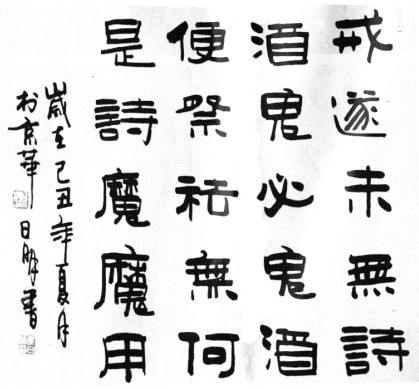 戒酒便是
遂鬼祭詩
未必祛魔
無鬼無魔
詩酒何用
歲在己丑年夏月
於京華 日明書